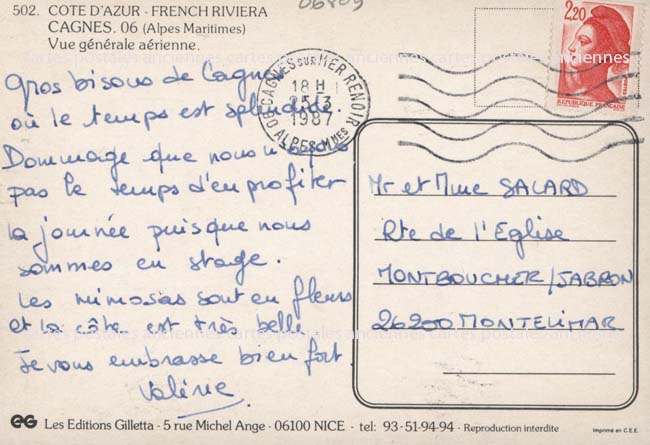 502. COTE D'AZUR - FRENCH RIVIERA
CAGNES. 06 (Alpes Maritimes)
Vue générale aérienne.
06809
2,20
RÉPUBLIQUE FRANÇAISE
CAGNES SUR MER RENOIR
18 H
1987
06 ALPES MMES
cartes postales anciennes cartes postales anciennes
Gros bisous de Cagnes
où le temps est splendide.
Dommage que nous n'ayons
pas le temps d'en profiter
la journée puisque nous
sommes en stage.
Les mimosas sont en fleurs
et la côte est très belle
Je vous embrasse bien fort.
Valérie
Mr et Mme SALARD
Rte de l'Eglise
MONTBOUCHER/JABRON
26200 MONTELIMAR
EG Les Editions Gilletta - 5 rue Michel Ange - 06100 NICE - tel: 93-51-94-94 - Reproduction interdite
Imprimé en C.E.E.